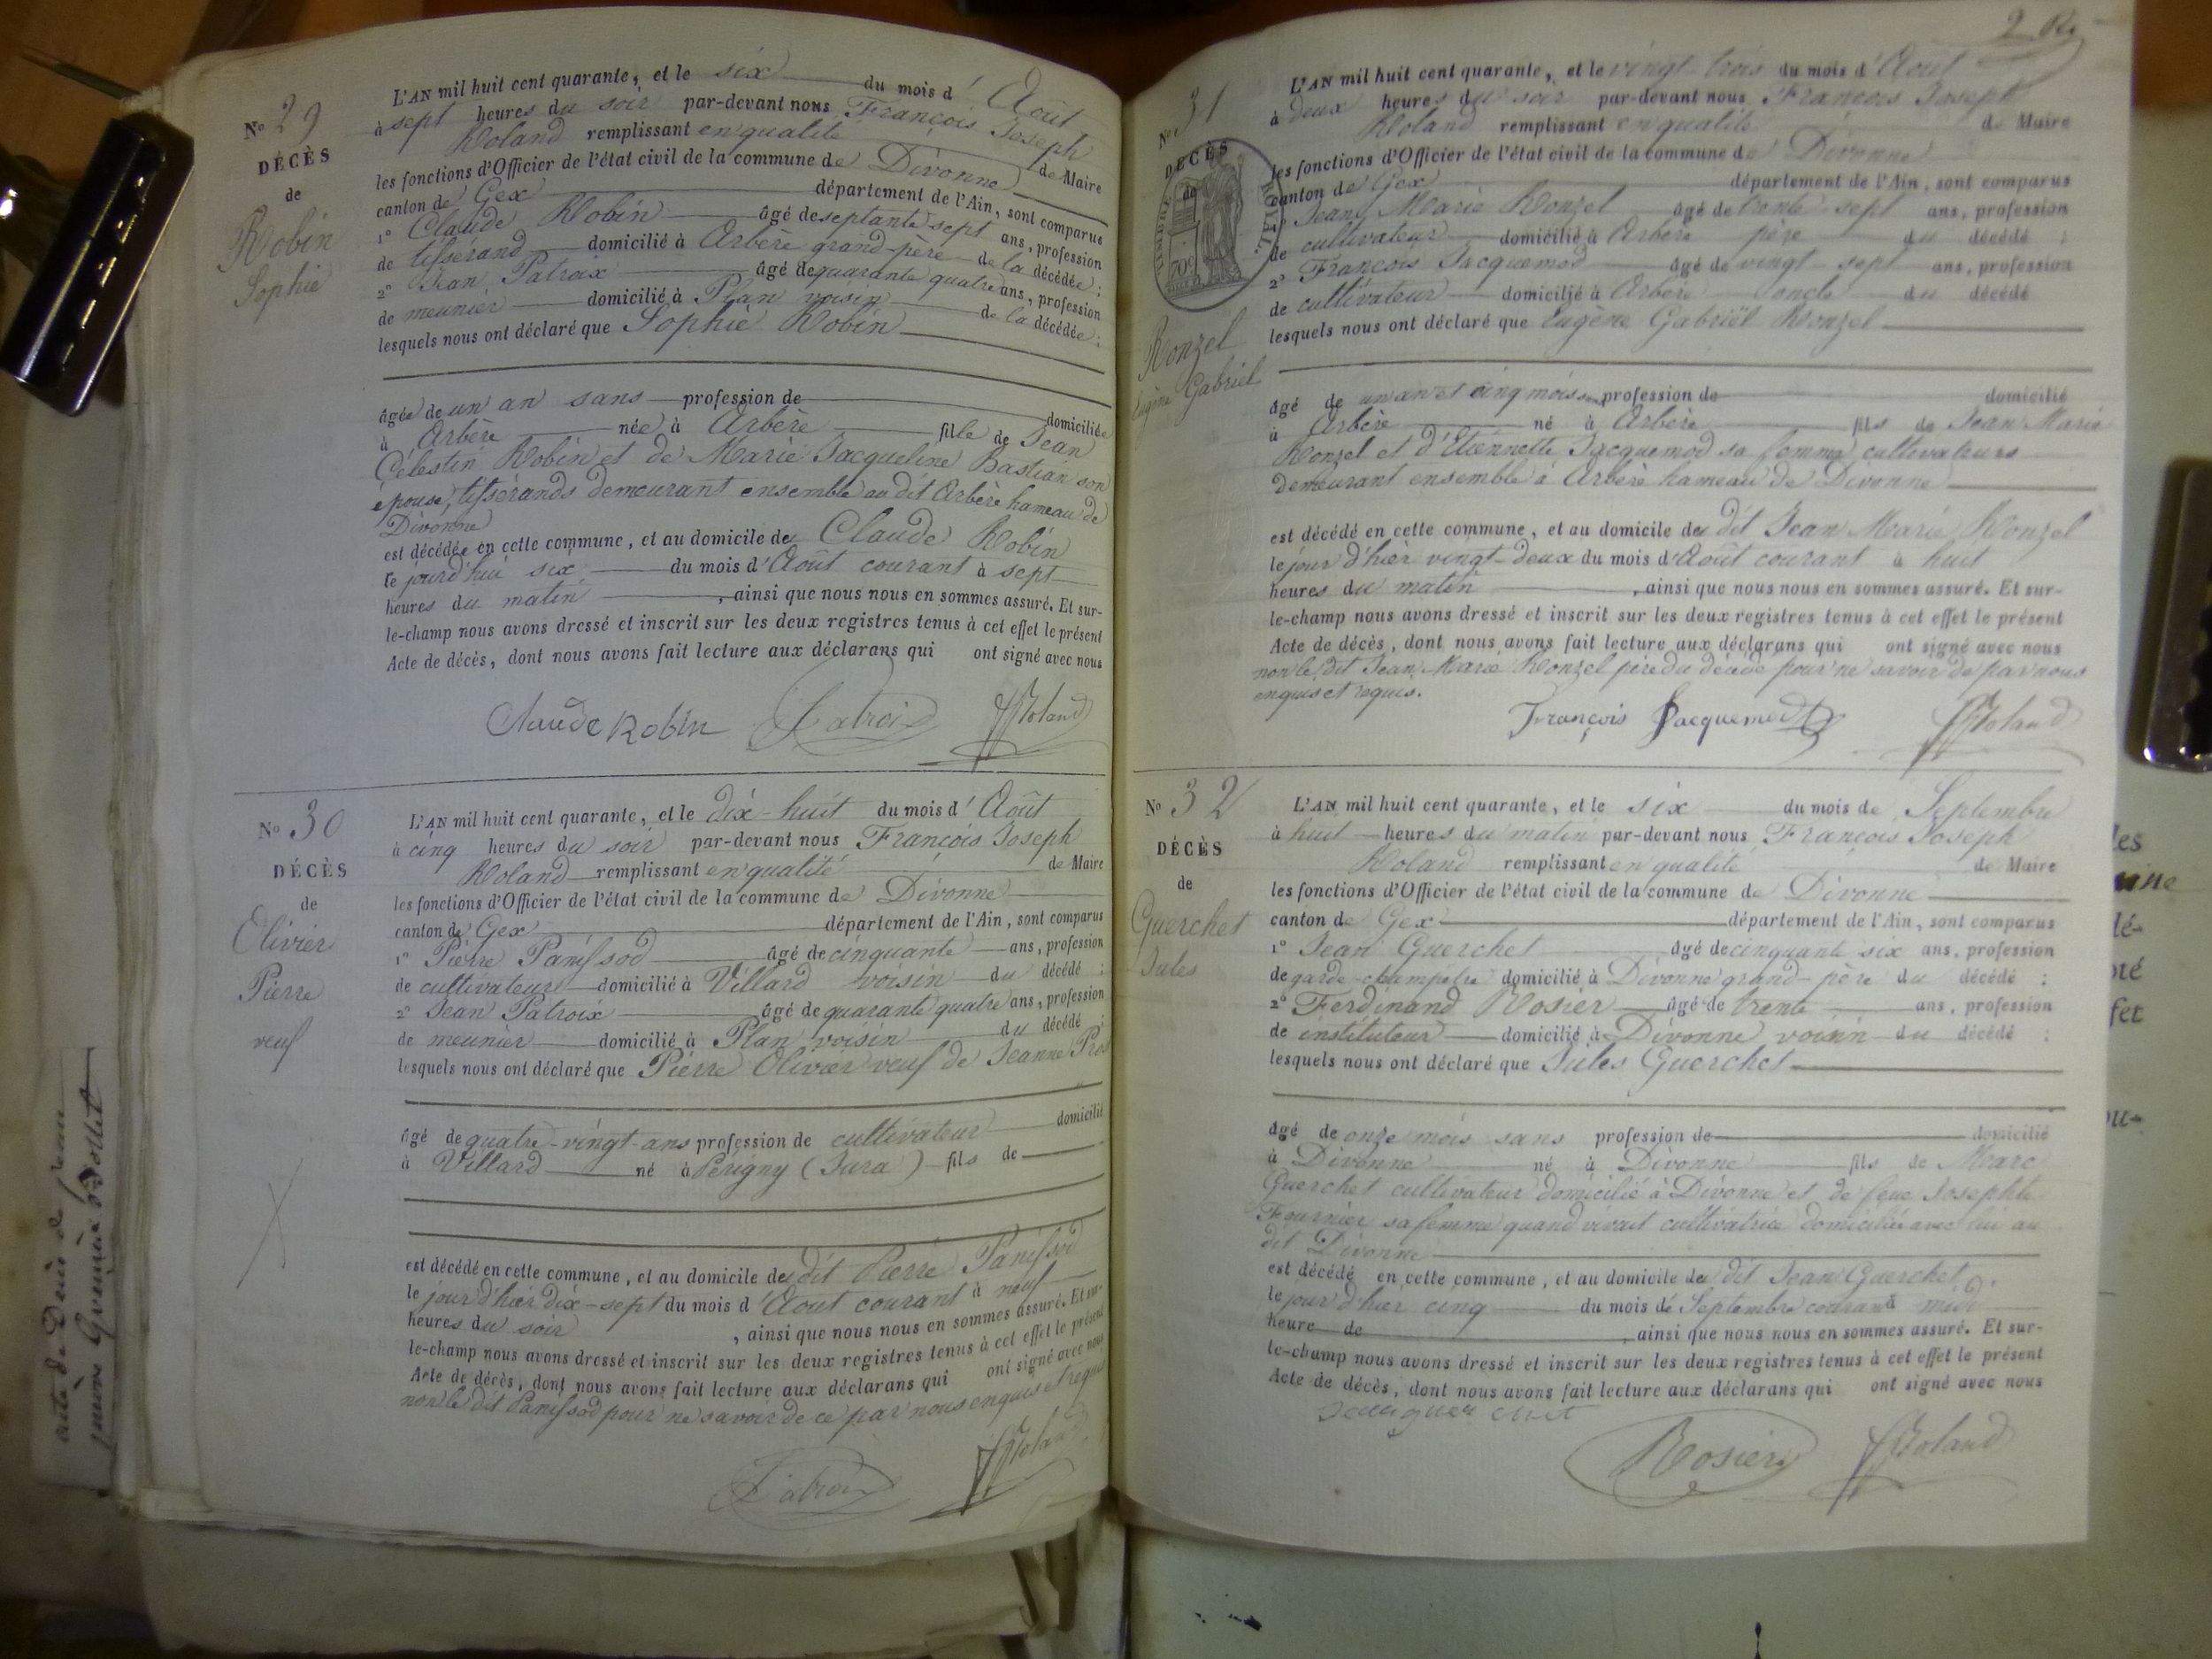 L'AN mil huit cent quarante, et le six du mois d'Août
à sept heures du soir par-devant nous François Joseph
Roland remplissant en qualité de Maire
les fonctions d'Officier de l'état civil de la commune de Divonne
canton de Gex département de l'Ain, sont comparus
1º Claude Robin âgé de septante sept ans, profession
de tisserand domicilié à Arbère grand-père de la décédée;
2º Jean Patroix âgé de quarante quatre ans, profession
de meunier domicilié à Plan voisin de la décédée;
lesquels nous ont déclaré que Sophie Robin
Nº 29
DÉCÈS
de
Robin
Sophie
âgée de un an sans profession de domiciliée
à Arbère née à Arbère fille de Jean
Célestin Robin et de Marie Jacqueline Bastian son
épouse, tisserands demeurant ensemble au dit Arbère hameau de
Divonne
est décédée en cette commune, et au domicile de Claude Robin
le jourd'hui six du mois d'Août courant à sept
heures du matin, ainsi que nous nous en sommes assuré. Et sur-
le-champ nous avons dressé et inscrit sur les deux registres tenus à cet effet le présent
Acte de décès, dont nous avons fait lecture aux déclarans qui ont signé avec nous
Claude Robin Patroix Roland
Nº 30
DÉCÈS
de
Olivier
Pierre
veuf
L'AN mil huit cent quarante, et le dix-huit du mois d'Août
à cinq heures du soir par-devant nous François Joseph
Roland remplissant en qualité de Maire
les fonctions d'Officier de l'état civil de la commune de Divonne
canton de Gex département de l'Ain, sont comparus
1º Pierre Panissod âgé de cinquante ans, profession
de cultivateur domicilié à Villard voisin du décédé;
2º Jean Patroix âgé de quarante quatre ans, profession
de meunier domicilié à Plan voisin du décédé
lesquels nous ont déclaré que Pierre Olivier veuf de Jeanne
âgé de quatre-vingt ans profession de cultivateur domicilié
à Villard né à Perigny (Jura) fils de
est décédé en cette commune, et au domicile du dit Pierre Panissod
le jour d'hier dix-sept du mois d'Aout courant à neuf
heures du soir, ainsi que nous nous en sommes assuré. Et sur-
le-champ nous avons dressé et inscrit sur les deux registres tenus à cet effet le présent
Acte de décès, dont nous avons fait lecture aux déclarans qui ont signé avec nous
non le dit Panissod pour ne savoir de ce par nous enquis et requis
Patroix Roland
acte de Décès de jean
2
Nº 31
DÉCÈS
de
Ronzel
Eugène Gabriel
L'AN mil huit cent quarante, et le vingt-trois du mois d'Août
à deux heures du soir par-devant nous François Joseph
Roland remplissant en qualité de Maire
les fonctions d'Officier de l'état civil de la commune de Divonne
canton de Gex département de l'Ain, sont comparus
1º Jean Marie Ronzel âgé de trente-sept ans, profession
de cultivateur domicilié à Arbère père du décédé;
2º François Jacquemod âgé de vingt-sept ans, profession
de cultivateur domicilié à Arbère oncle du décédé
lesquels nous ont déclaré que Eugène Gabriël Ronzel
âgé de un an et cinq mois sans profession de domicilié
à Arbère né à Arbère fils de Jean Marie
Ronzel et d'Etiennette Jacquemod sa femme cultivateurs
demeurant ensemble à Arbère hameau de Divonne
est décédé en cette commune, et au domicile du dit Jean Marie Ronzel
le jour d'hier vingt-deux du mois d'Août courant à huit
heures du matin, ainsi que nous nous en sommes assuré. Et sur-
le-champ nous avons dressé et inscrit sur les deux registres tenus à cet effet le présent
Acte de décès, dont nous avons fait lecture aux déclarans qui ont signé avec nous
non le dit Jean Marie Ronzel père du décédé pour ne savoir de par nous
enquis et requis.
François Jacquemod Roland
Nº 32
DÉCÈS
de
Guerchet
Jules
L'AN mil huit cent quarante, et le six du mois de Septembre
à huit heures du matin par-devant nous François Joseph
Roland remplissant en qualité de Maire
les fonctions d'Officier de l'état civil de la commune de Divonne
canton de Gex département de l'Ain, sont comparus
1º Jean Guerchet âgé de cinquante six ans, profession
de garde-champetre domicilié à Divonne grand-père du décédé;
2º Ferdinand Rosier âgé de trente ans, profession
de instituteur domicilié à Divonne voisin du décédé:
lesquels nous ont déclaré que Jules Guerchet
âgé de onze mois sans profession de domicilié
à Divonne né à Divonne fils de Marc
Guerchet cultivateur domicilié à Divonne et de feue Josephte
Fournier sa femme quand vivait cultivatrice domiciliée avec lui au
dit Divonne
est décédé en cette commune, et au domicile du dit Jean Guerchet
le jour d'hier cinq du mois de Septembre courant à midi
heure de, ainsi que nous nous en sommes assuré. Et sur-
le-champ nous avons dressé et inscrit sur les deux registres tenus à cet effet le présent
Acte de décès, dont nous avons fait lecture aux déclarans qui ont signé avec nous
Rosier Roland